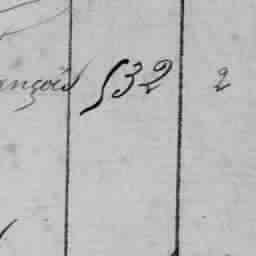 ançois 532 2